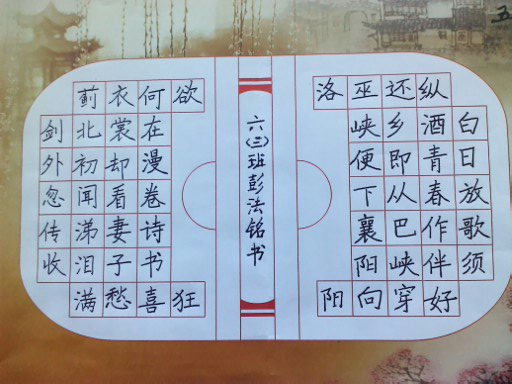 剑外忽传收
蓟北初闻涕泪满
衣裳却看妻子愁
何在漫卷诗书喜
欲狂
六(三)班彭法铭书
白日放歌须
纵酒青春作伴好
还乡即从巴峡穿
巫峡便下襄阳向
洛阳
五